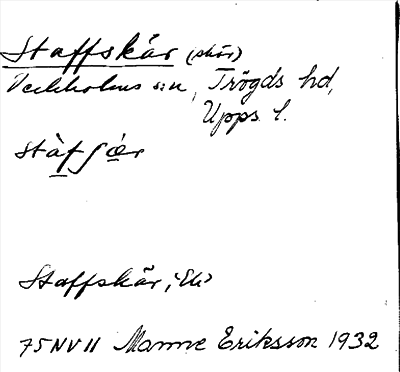 Staffskär (skär)
Veckholms sn, Trögds hd,
Upps. l.
stàf ʃǽr
Staffskär, Ek
75NV11 Manne Eriksson 1932